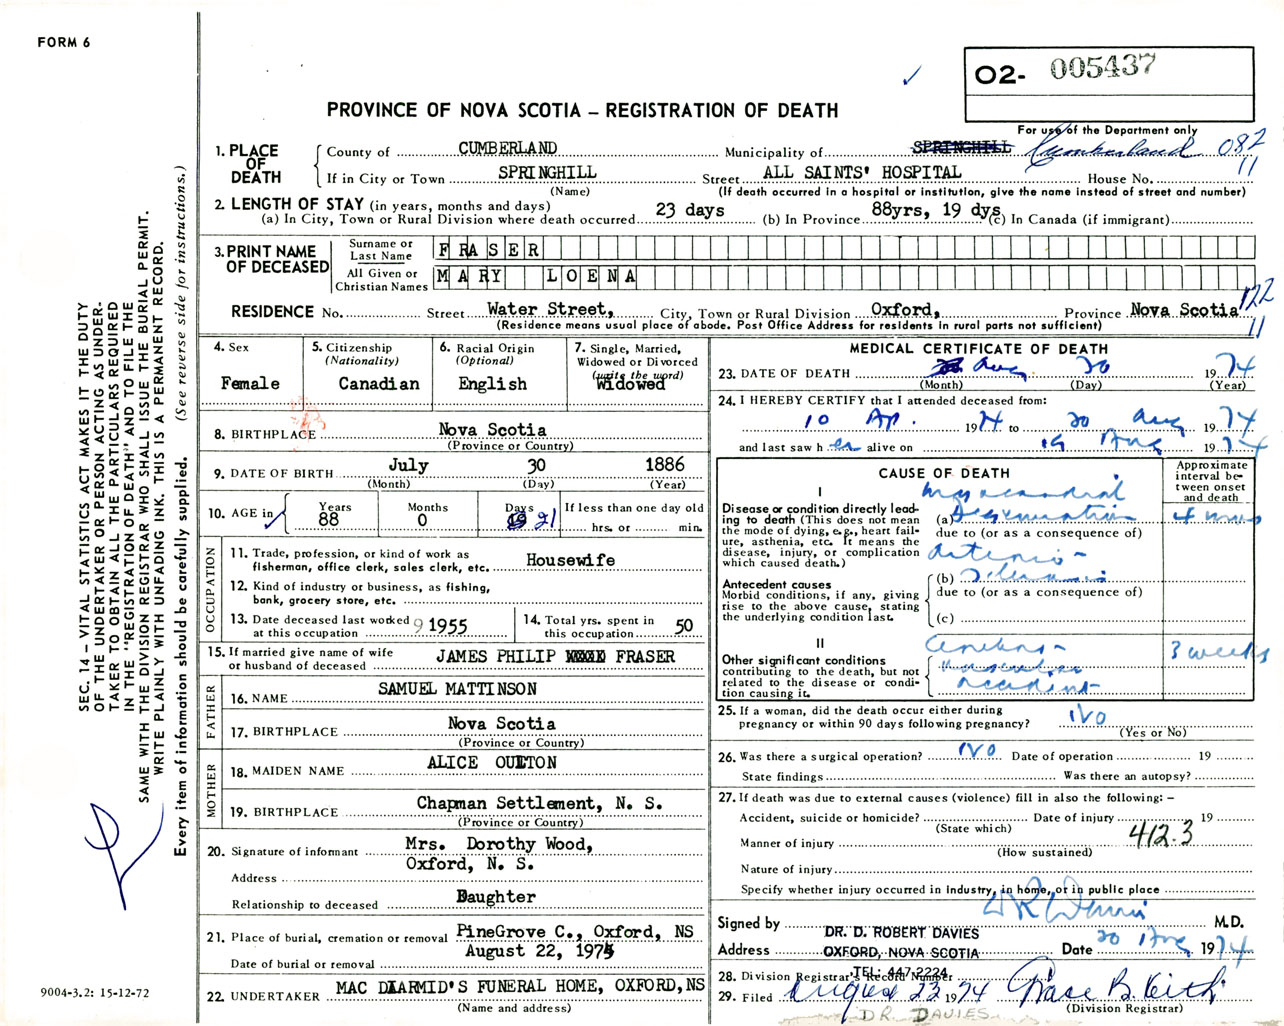 FORM 6
O2- 005437
PROVINCE OF NOVA SCOTIA – REGISTRATION OF DEATH
For use of the Department only
1. PLACE OF DEATH
County of CUMBERLAND Municipality of SPRINGHILL Cumberland 082
If in City or Town SPRINGHILL Street ALL SAINTS' HOSPITAL House No. 11
(Name) (If death occurred in a hospital or institution, give the name instead of street and number)
2. LENGTH OF STAY (in years, months and days)
(a) In City, Town or Rural Division where death occurred 23 days (b) In Province 88yrs, 19 dys (c) In Canada (if immigrant)
3. PRINT NAME OF DECEASED
Surname or Last Name FRASER
All Given or Christian Names MARY LOENA
RESIDENCE No. Street Water Street, City, Town or Rural Division Oxford, Province Nova Scotia 122
(Residence means usual place of abode. Post Office Address for residents in rural parts not sufficient) 11
4. Sex
Female
5. Citizenship
(Nationality)
Canadian
6. Racial Origin
(Optional)
English
7. Single, Married,
Widowed or Divorced
(write the word)
Widowed
8. BIRTHPLACE Nova Scotia
(Province or Country)
9. DATE OF BIRTH July 30 1886
(Month) (Day) (Year)
10. AGE in
Years Months Days If less than one day old
88 0 19 21 hrs. or min.
OCCUPATION
11. Trade, profession, or kind of work as
fisherman, office clerk, sales clerk, etc. Housewife
12. Kind of industry or business, as fishing,
bank, grocery store, etc.
13. Date deceased last worked
at this occupation 9 1955
14. Total yrs. spent in
this occupation 50
15. If married give name of wife
or husband of deceased JAMES PHILIP FRASER
FATHER
16. NAME SAMUEL MATTINSON
17. BIRTHPLACE Nova Scotia
(Province or Country)
MOTHER
18. MAIDEN NAME ALICE OULTON
19. BIRTHPLACE Chapman Settlement, N. S.
(Province or Country)
20. Signature of informant Mrs. Dorothy Wood,
Oxford, N. S.
Address
Relationship to deceased Daughter
21. Place of burial, cremation or removal PineGrove C., Oxford, NS
Date of burial or removal August 22, 1974
22. UNDERTAKER MAC DIARMID'S FUNERAL HOME, OXFORD, NS
(Name and address)
MEDICAL CERTIFICATE OF DEATH
23. DATE OF DEATH Aug 20 1974
(Month) (Day) (Year)
24. I HEREBY CERTIFY that I attended deceased from:
10 Ap. 1974 to 20 Aug 1974
and last saw her alive on 19 Aug 1974
CAUSE OF DEATH
Approximate
interval be-
tween onset
and death
I
Disease or condition directly lead-
ing to death (This does not mean
the mode of dying, e.g., heart fail-
ure, asthenia, etc. It means the
disease, injury, or complication
which caused death.)
Myocardial
(a) Degeneration 4 mos
due to (or as a consequence of)
Arterio-
(b) Sclerosis
due to (or as a consequence of)
(c)
Antecedent causes
Morbid conditions, if any, giving
rise to the above cause, stating
the underlying condition last.
II
Other significant conditions
contributing to the death, but not
related to the disease or condi-
tion causing it.
Cerebro-
vascular
accident
3 weeks
25. If a woman, did the death occur either during
pregnancy or within 90 days following pregnancy? NO
(Yes or No)
26. Was there a surgical operation? NO Date of operation 19
State findings Was there an autopsy?
27. If death was due to external causes (violence) fill in also the following: –
Accident, suicide or homicide? Date of injury 19
(State which)
412.3
Manner of injury
(How sustained)
Nature of injury
Specify whether injury occurred in industry, in home, or in public place
Signed by DR Davies M.D.
DR. D. ROBERT DAVIES
Address OXFORD, NOVA SCOTIA Date 20 Aug 1974
TEL: 447-2224
28. Division Registrar's Record Number
29. Filed August 23 1974 Grace B. Keith
(Division Registrar)
DR. DAVIES
SEC. 14 – VITAL STATISTICS ACT MAKES IT THE DUTY
OF THE UNDERTAKER OR PERSON ACTING AS UNDER-
TAKER TO OBTAIN ALL THE PARTICULARS REQUIRED
IN THE "REGISTRATION OF DEATH" AND TO FILE THE
SAME WITH THE DIVISION REGISTRAR WHO SHALL ISSUE THE BURIAL PERMIT.
WRITE PLAINLY WITH UNFADING INK. THIS IS A PERMANENT RECORD.
Every item of information should be carefully supplied. (See reverse side for instructions.)
9004-3.2: 15-12-72